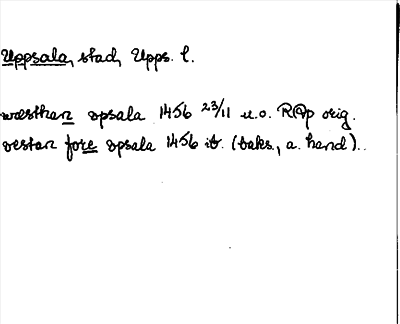 Uppsala, stad, Upps. l.
westhan opsala 1456 23/11 u.o. RAp orig.
vestan fore opsala 1456 ib. (baks., a. hand).